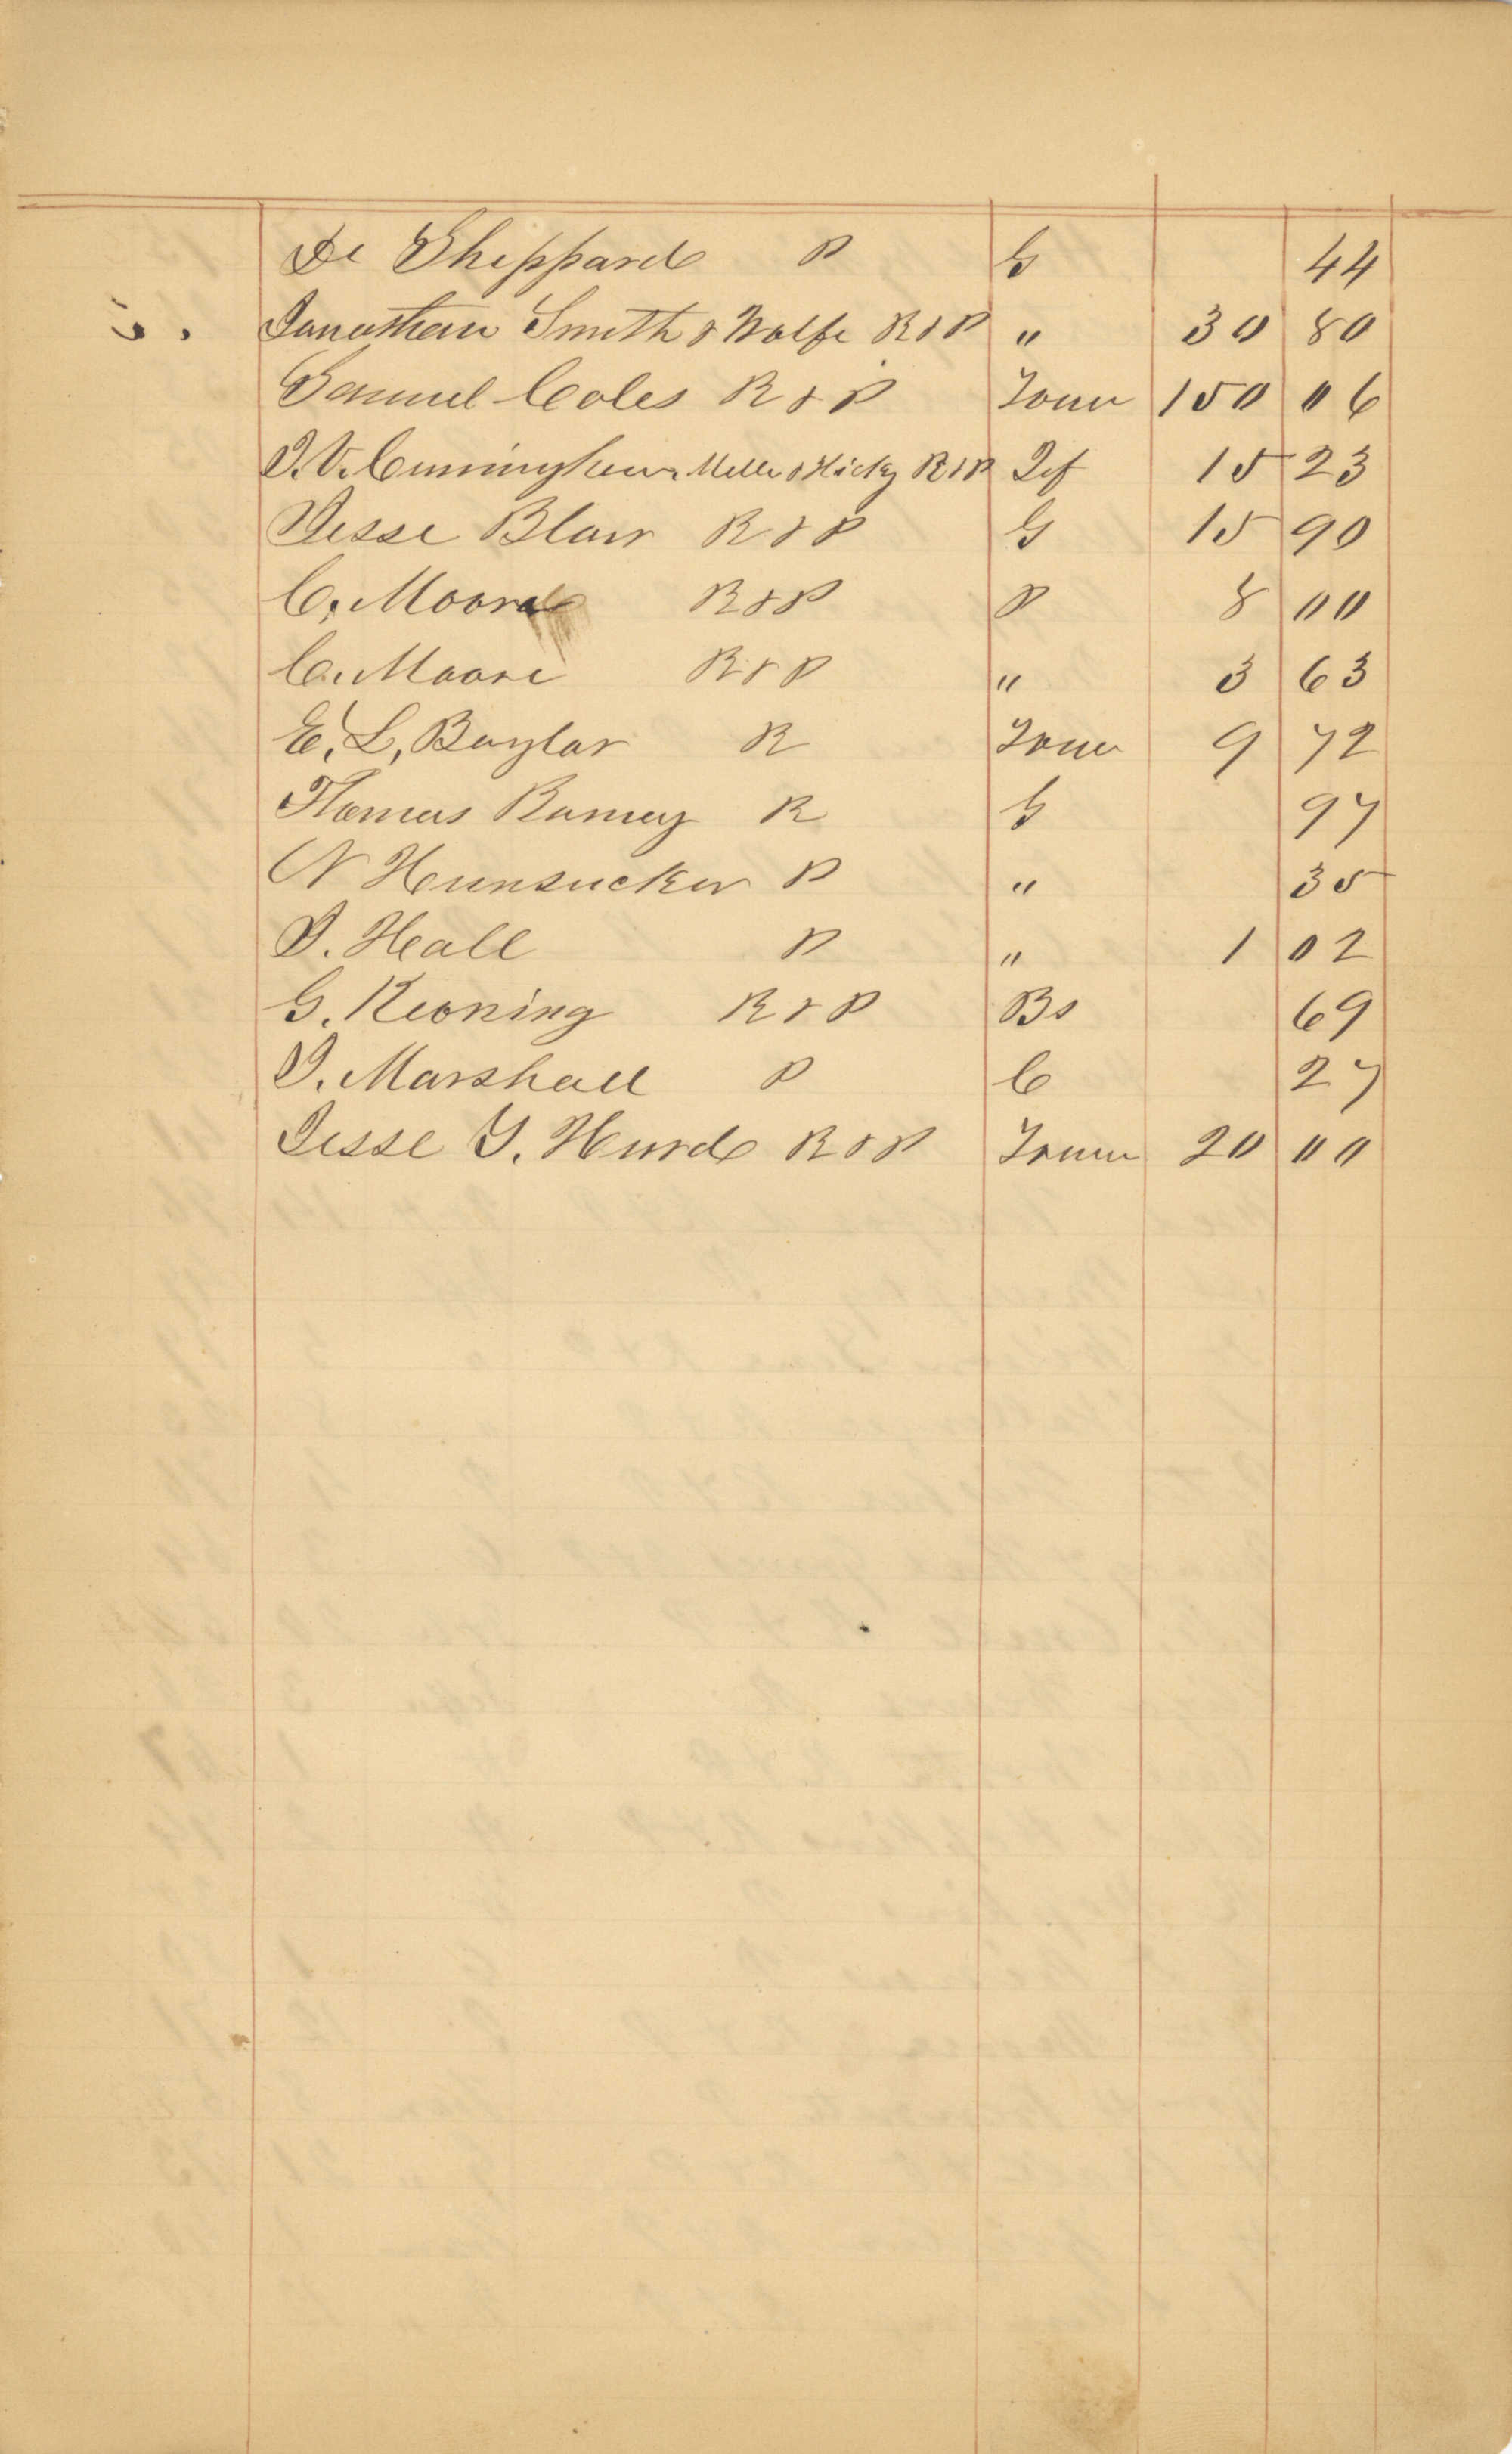 De Sheppard P G 44
Jonathan Smith & Wolfe R & P " 30 80
Samuel Coles R & P Town 150 06
J. V. Cunningham Mille & Hicky R & P Jef 15 23
Jesse Blair R & P G 15 90
C. Moore R & P P 8 00
C. Moore R & P " 3 63
E. L. Baylor R Town 9 72
Thomas Ramey R G 97
N Hunsucker P " 35
J. Hall P " 1 02
G. Kevning R & P Bs 69
J. Marshall P C 27
Jesse Y. Hurd R & P Town 20 00